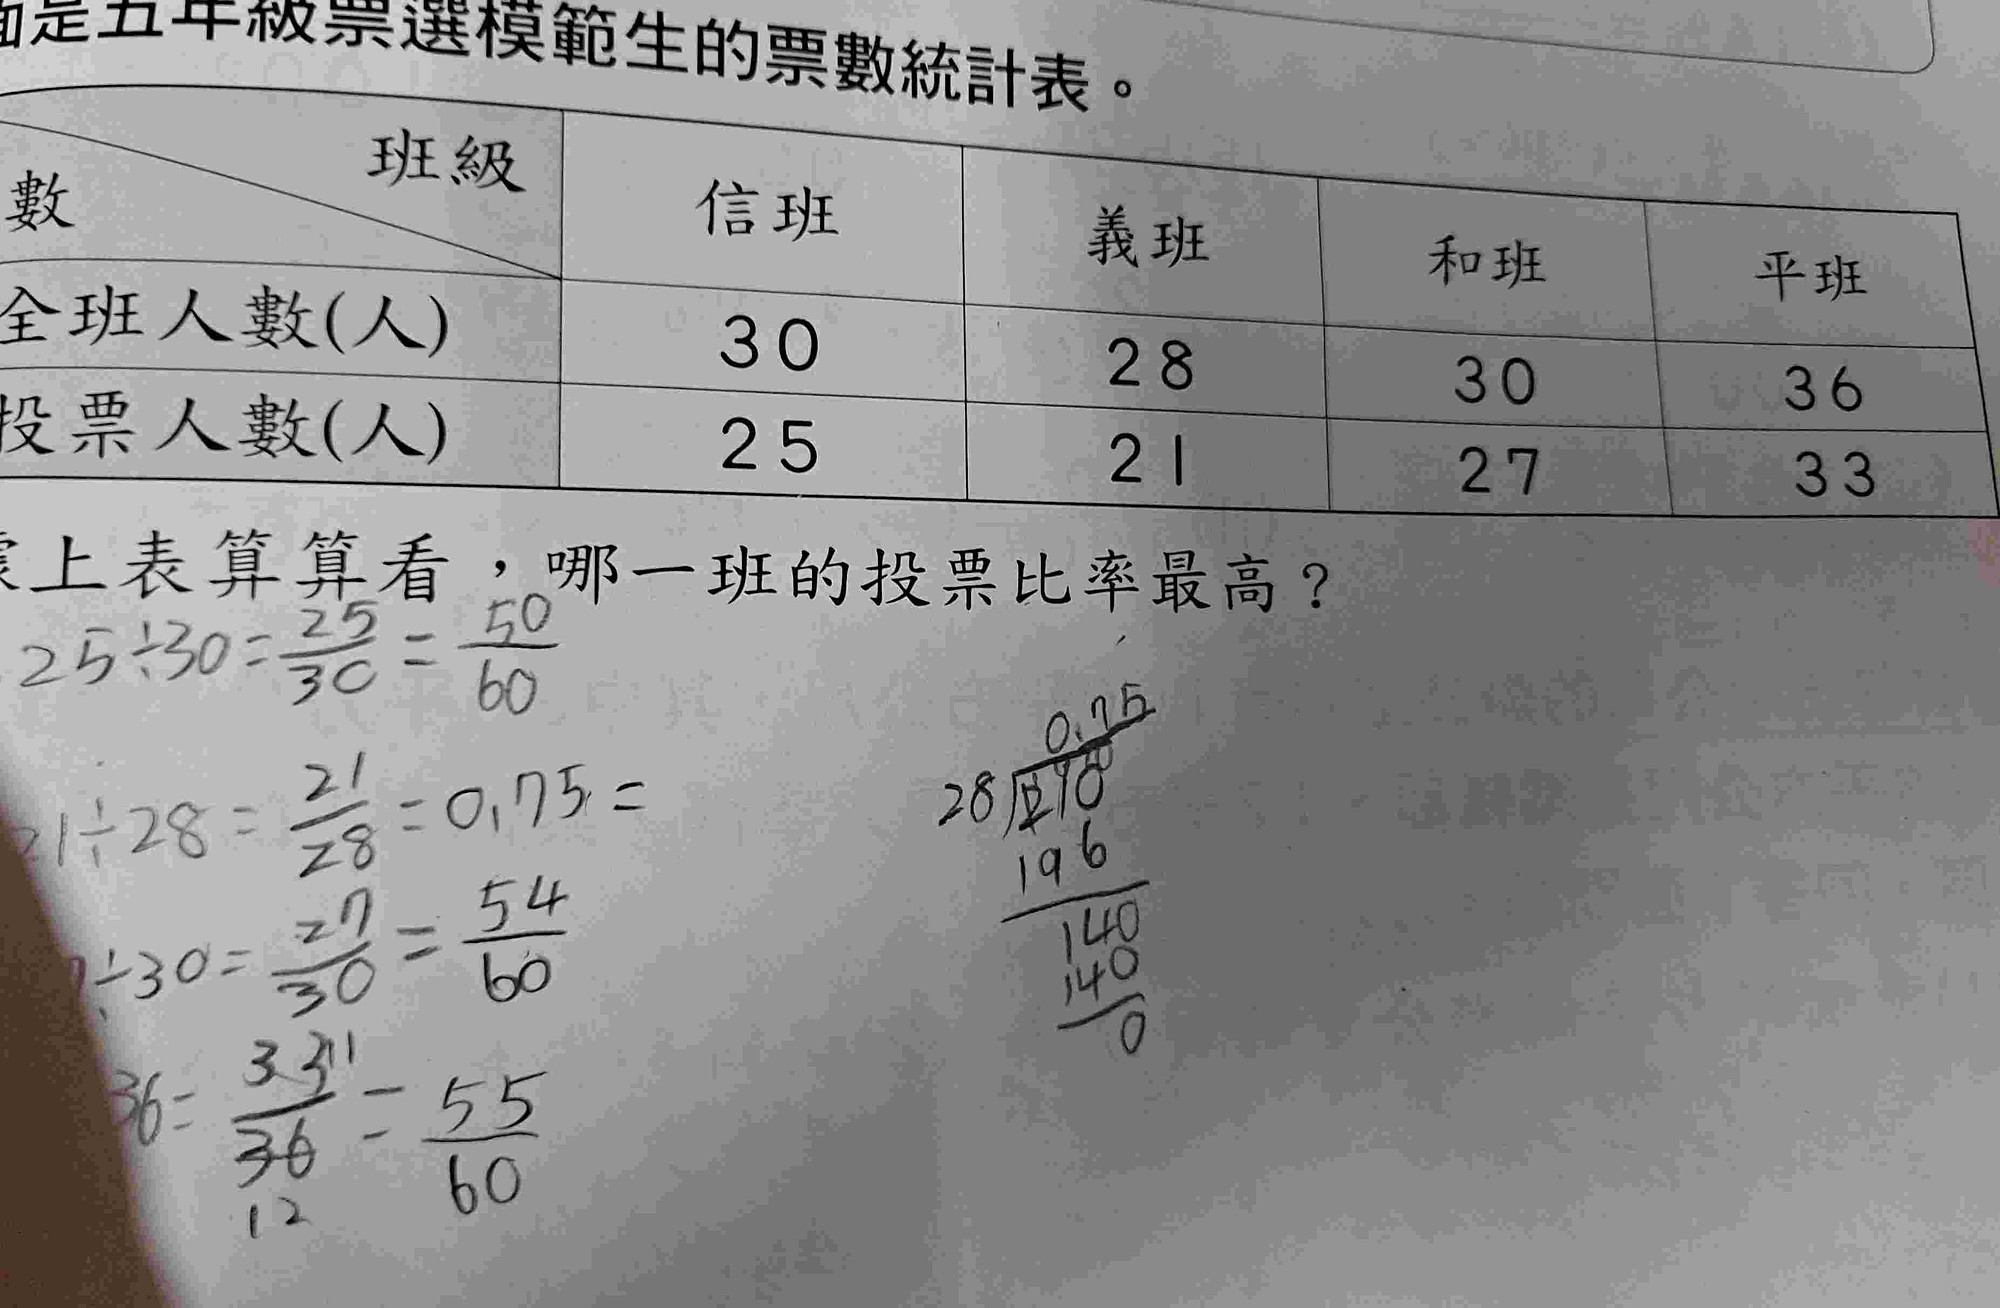 是五年級票選模範生的票數統計表。
班級 信班 義班 和班 平班
數
全班人數(人) 30 28 30 36
投票人數(人) 25 21 27 33
上表算算看，哪一班的投票比率最高？
25÷30=25/30=50/60
21÷28=21/28=0.75=
÷30=27/30=54/60
36=33/36=55/60
11
12
0.75
28 210
196
140
140
0